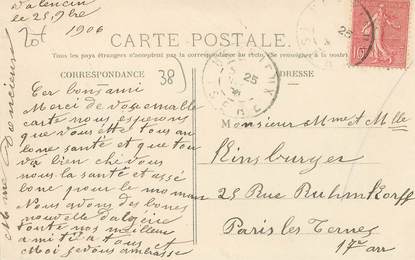 Valencin
le 25 9bre
1906
CARTE POSTALE
Tous les pays étrangers n'acceptent pas la correspondance au recto. (Se renseigner à la poste)
CORRESPONDANCE
38
ADRESSE
Cer bons ami
Merci de vos emable
carte nous esperons
que vous ette tous an
bone santé et que tou
va bien ché vous
nous la santé et assé
bone pour le moman
Nous avons des bones
nouvelle d'algérie
toute nos meilleur
amitié a tous et
Moi je vous ambrasse
Monsieur Mme et Mlle
Kinsburger
25 Rue Ruhmkorff
Paris les Ternes
17e arr